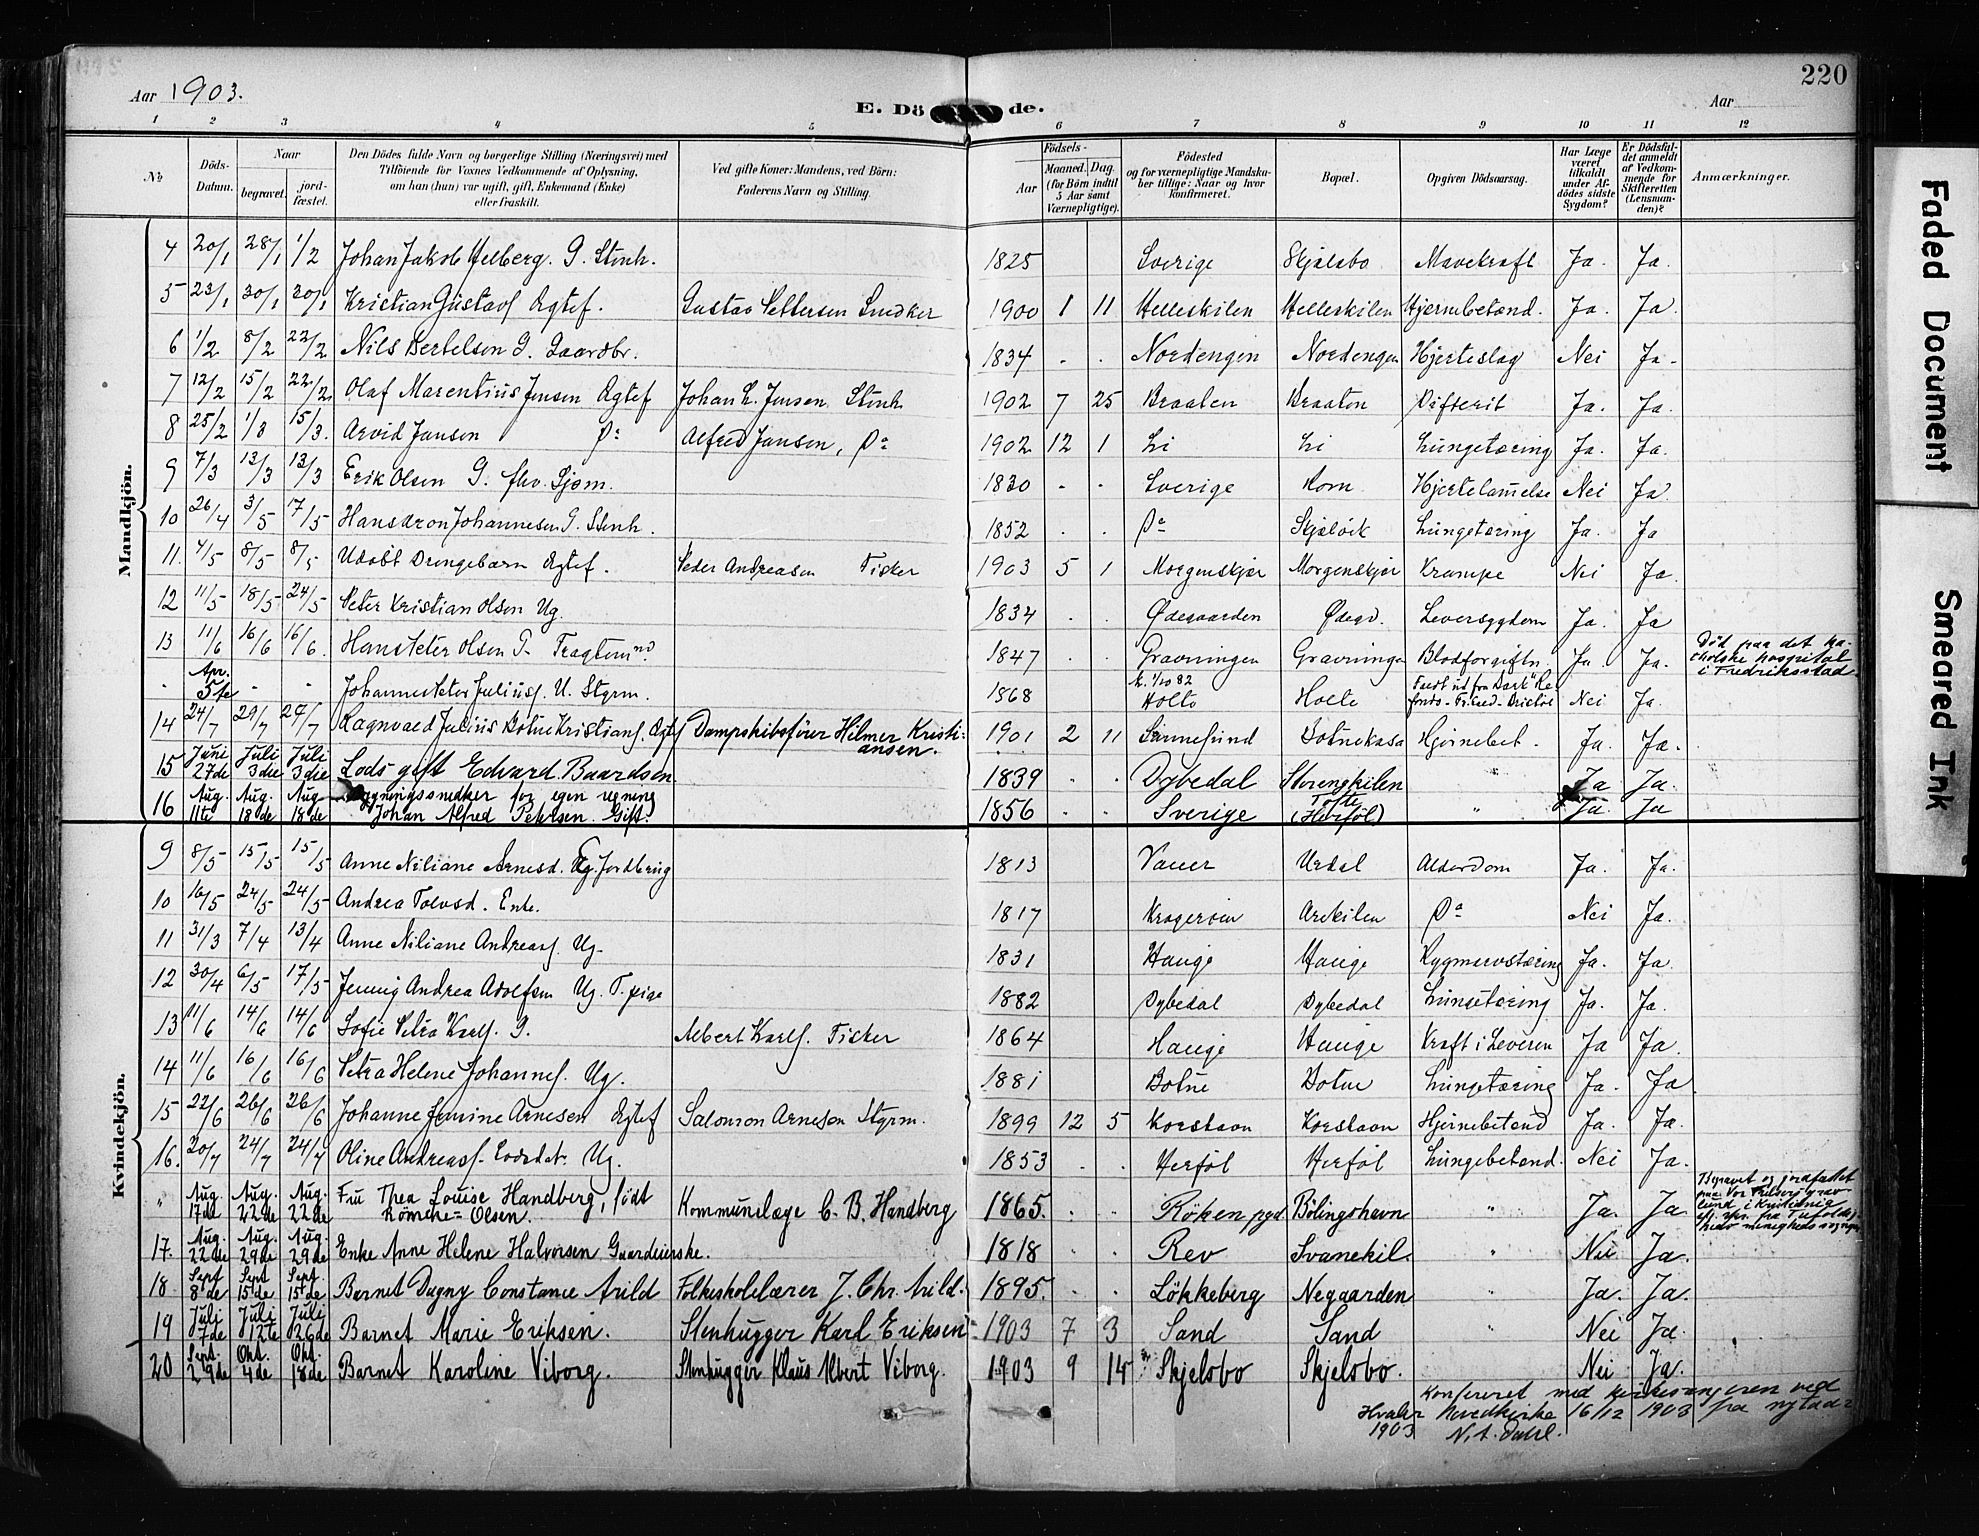 220
Aar 1903.
E. Dö de.
Aar
1 2 3 4 5 6 7 8 9 10 11 12
No
Döds-Datum.
Naar
begravet.
jord-fæstet.
Den Dödes fulde Navn og borgerlige Stilling (Næringsvei) med
Tilföiende for Voxnes Vedkommende af Oplysning,
om han (hun) var ugift, gift, Enkemand (Enke)
eller fraskilt.
Ved gifte Koner: Mandens, ved Börn:
Faderens Navn og Stilling.
Födsels-
Aar
Maaned. Dag.
(for Börn indtil
5 Aar samt
Værnepligtige).
Födested
og for værnepligtige Mandska-
ber tillige: Naar og hvor
konfirmeret.
Bopæl.
Opgiven Dödsaarsag.
Har Læge
været
tilkaldt
under Af-
dödes sidste
Sygdom?
Er Dödsfal-
det anmeldt
af Vedkom-
mende for
Skifteretten
(Lensman-
den)?
Anmærkninger.
Mandkjön.
4 20/1 28/1 1/2 Johan Jakob Helberg. G. Stenh. 1825 Sverige Skjelsbo Mavekræft Ja. Ja.
5 23/1 30/1 30/1 Kristian Gustavs Ægtef. Gustav Pettersen Snedker 1900 1 11 Helleskilen Helleskilen Hjernebetænd. Ja. Ja.
6 1/2 8/2 22/2 Nils Bertelsen G. Gaardbr. 1834 . . Nordengen Nordengen Hjerteslag Nei Ja.
7 12/2 15/2 22/2 Olaf Marentius Jensen Ægtef Johan L. Jensen Stenh 1902 7 25 Braaten Braaten Difterit Ja. Ja.
8 25/2 1/3 15/3. Arvid Jansen Do Alfred Jansen, Do 1902 12 1 Li Li Lungetæring Ja. Ja.
9 7/3 13/3 13/3 Erik Olsen G. fhv. Sjøm. 1830 - - Sverige Korn Hjertelamelse Nei Ja.
10 26/4 3/5 17/5 Hans Aron Johannesen G. Stenh. 1852 . . Do Skjelvik Lungetæring Ja. Ja
11. 4/5 8/5 8/5 Udøbt Drengebarn Ægtef. Peder Andreasen Fisker 1903 5 1 Morgenskjær Morgenskjær Krampe Nei Ja.
12 11/5 18/5 24/5 Peter Kristian Olsen Ug. 1834 . . Ødegaarden Ødegd. Leversygdom Ja. Ja
13 11/6 16/6 16/6. Hans Peter Olsen G. Fragtemnd. 1847 . Gravningen Gravninge Blodforgiftn. Ja Ja. Död paa det ka-
tholske hospital
i Fredriksstad.
. Apr. 5te - - Johannes Peter Juliuss. U. Styrm. 1868 K. 1/10 82 Holte Holte Nei Ja.
14 24/7 29/7 29/7 Ragnvald Julius Botne Kristians. Ægtef Dampskibsfører Hilmer Kristi-
ansen. 1901 2 11 Sannesund Botnekasa Hjernebet. Ja. Ja.
15 Juni 27de Juli 3die Juli 3die Lods gift Edvard Baardsen 1839 . . Dybedal Storengkilen " Ja Ja.
16 Aug. 11te Aug. 18de Aug. 18de Bygningssnedker for egen regning
Johan Alfred Petersen. Gift. 1856 . . Sverige Tofte
(Herføl) " Ja Ja
Kvindekjön.
9 8/5 15/5 15/5 Anne Niliane Arnesd. Eg. Jordbrug 1813 Vauer Urdal Alderdom Ja. Ja.
10 16/5 24/5 24/5 Andrea Torvsd. Enke. 1817 Kragerøen Arekilen Do Nei Ja.
11 31/3 7/4 13/4 Anne Niliane Andreass. Ug. 1831 Hauge Hauge Rygmarvstæring Ja. Ja.
12 30/4 6/5 17/5 Jenny Andrea Adolfsen Ug. T. pige 1882 Dybedal Dybedal Lungetæring Ja. Ja.
13 11/6 14/6 14/6 Sofie Petra Karls. G. Albert Karls. Fisker 1864 Hauge Hauge Kræft i Leveren Ja Ja.
14 11/6 16/6 16/6 Petra Helene Johannes. Ug. 1881 Botne Botne Lungetæring Ja. Ja.
15 22/6 26/6 26/6 Johanne Jenine Arnesen Ægtef Salomon Arnesen Styrm. 1899 12 5 Korshavn Korshavn Hjernebetænd Ja. Ja.
16. 20/7 24/7 24/7 Oline Andreass. Lodsdat. Ug. 1853 . . Herføl Herføl Lungebetænd. Nei Ja.
" Aug. 17de Aug. 22de Aug. 22de Fru Thea Louise Handberg, født
Römcke-Olsen. Kommunelæge C. B. Handberg 1865. Röken pgd. Bölingshavn Ja. Ja. Begravet og jordfæstet
paa Vor Frelsers grav-
lund i Kristiania
17. Aug. 22de Aug. 29de Aug. 29de Enke Anne Helene Halvorsen Gaardeierske. 1818 . . Rev Svanekil. " Nei Ja.
18. Sept 8de Sept 15de Sept. 15de Barnet Dagny Constance Arild Folkeskolelærer J. Chr. Arild. 1895. . . Lökkeberg Negaarden " Ja. Ja.
19 Juli 7de Juli 12te Juli 26de Barnet Marie Eriksen. Stenhugger Karl Eriksen 1903 7 3 Sand Sand " Nei Ja.
20 Sept. 29de Okt. 4de Okt. 18de Barnet Karoline Viborg. Stenhugger Klaus Albert Viborg. 1903 9 14 Skjelsbo Skjelsbo. Nei Ja.
Konfereret med kirkesangeren ved
Hvaler Hovedkirke 16/12 1903
1903 N. A. Dahl.
Faded Document
Smeared Ink